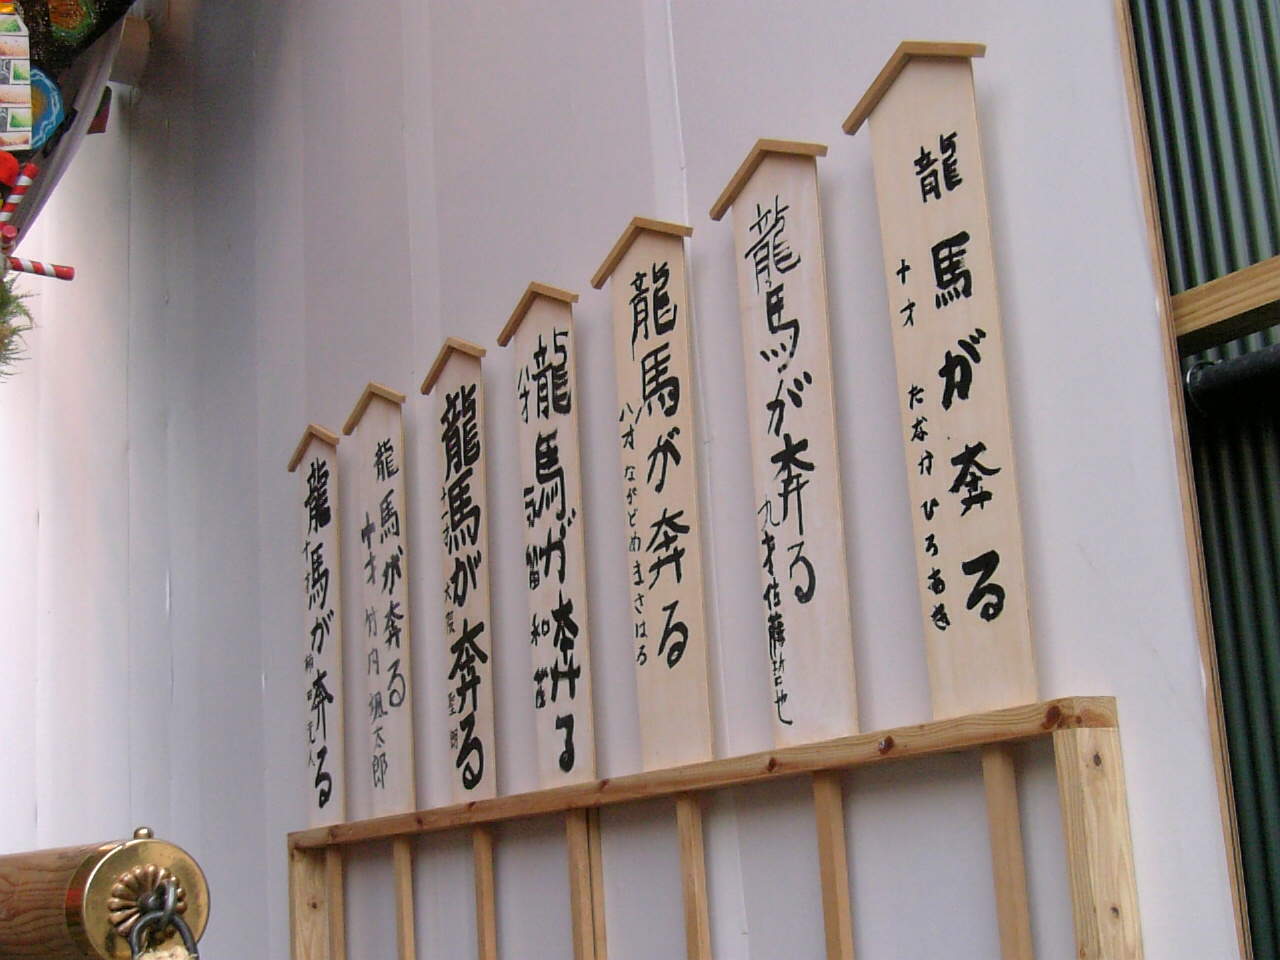 龍馬が奔る
十才 たなかひろあき
龍馬が奔る
九才 佐藤哲也
龍馬が奔る
八才 ながどめまさはる
龍馬が奔る
八才 永留和
龍馬が奔る
十才 大 聖
龍馬が奔る
十才 竹内颯太郎
龍馬が奔る
十才